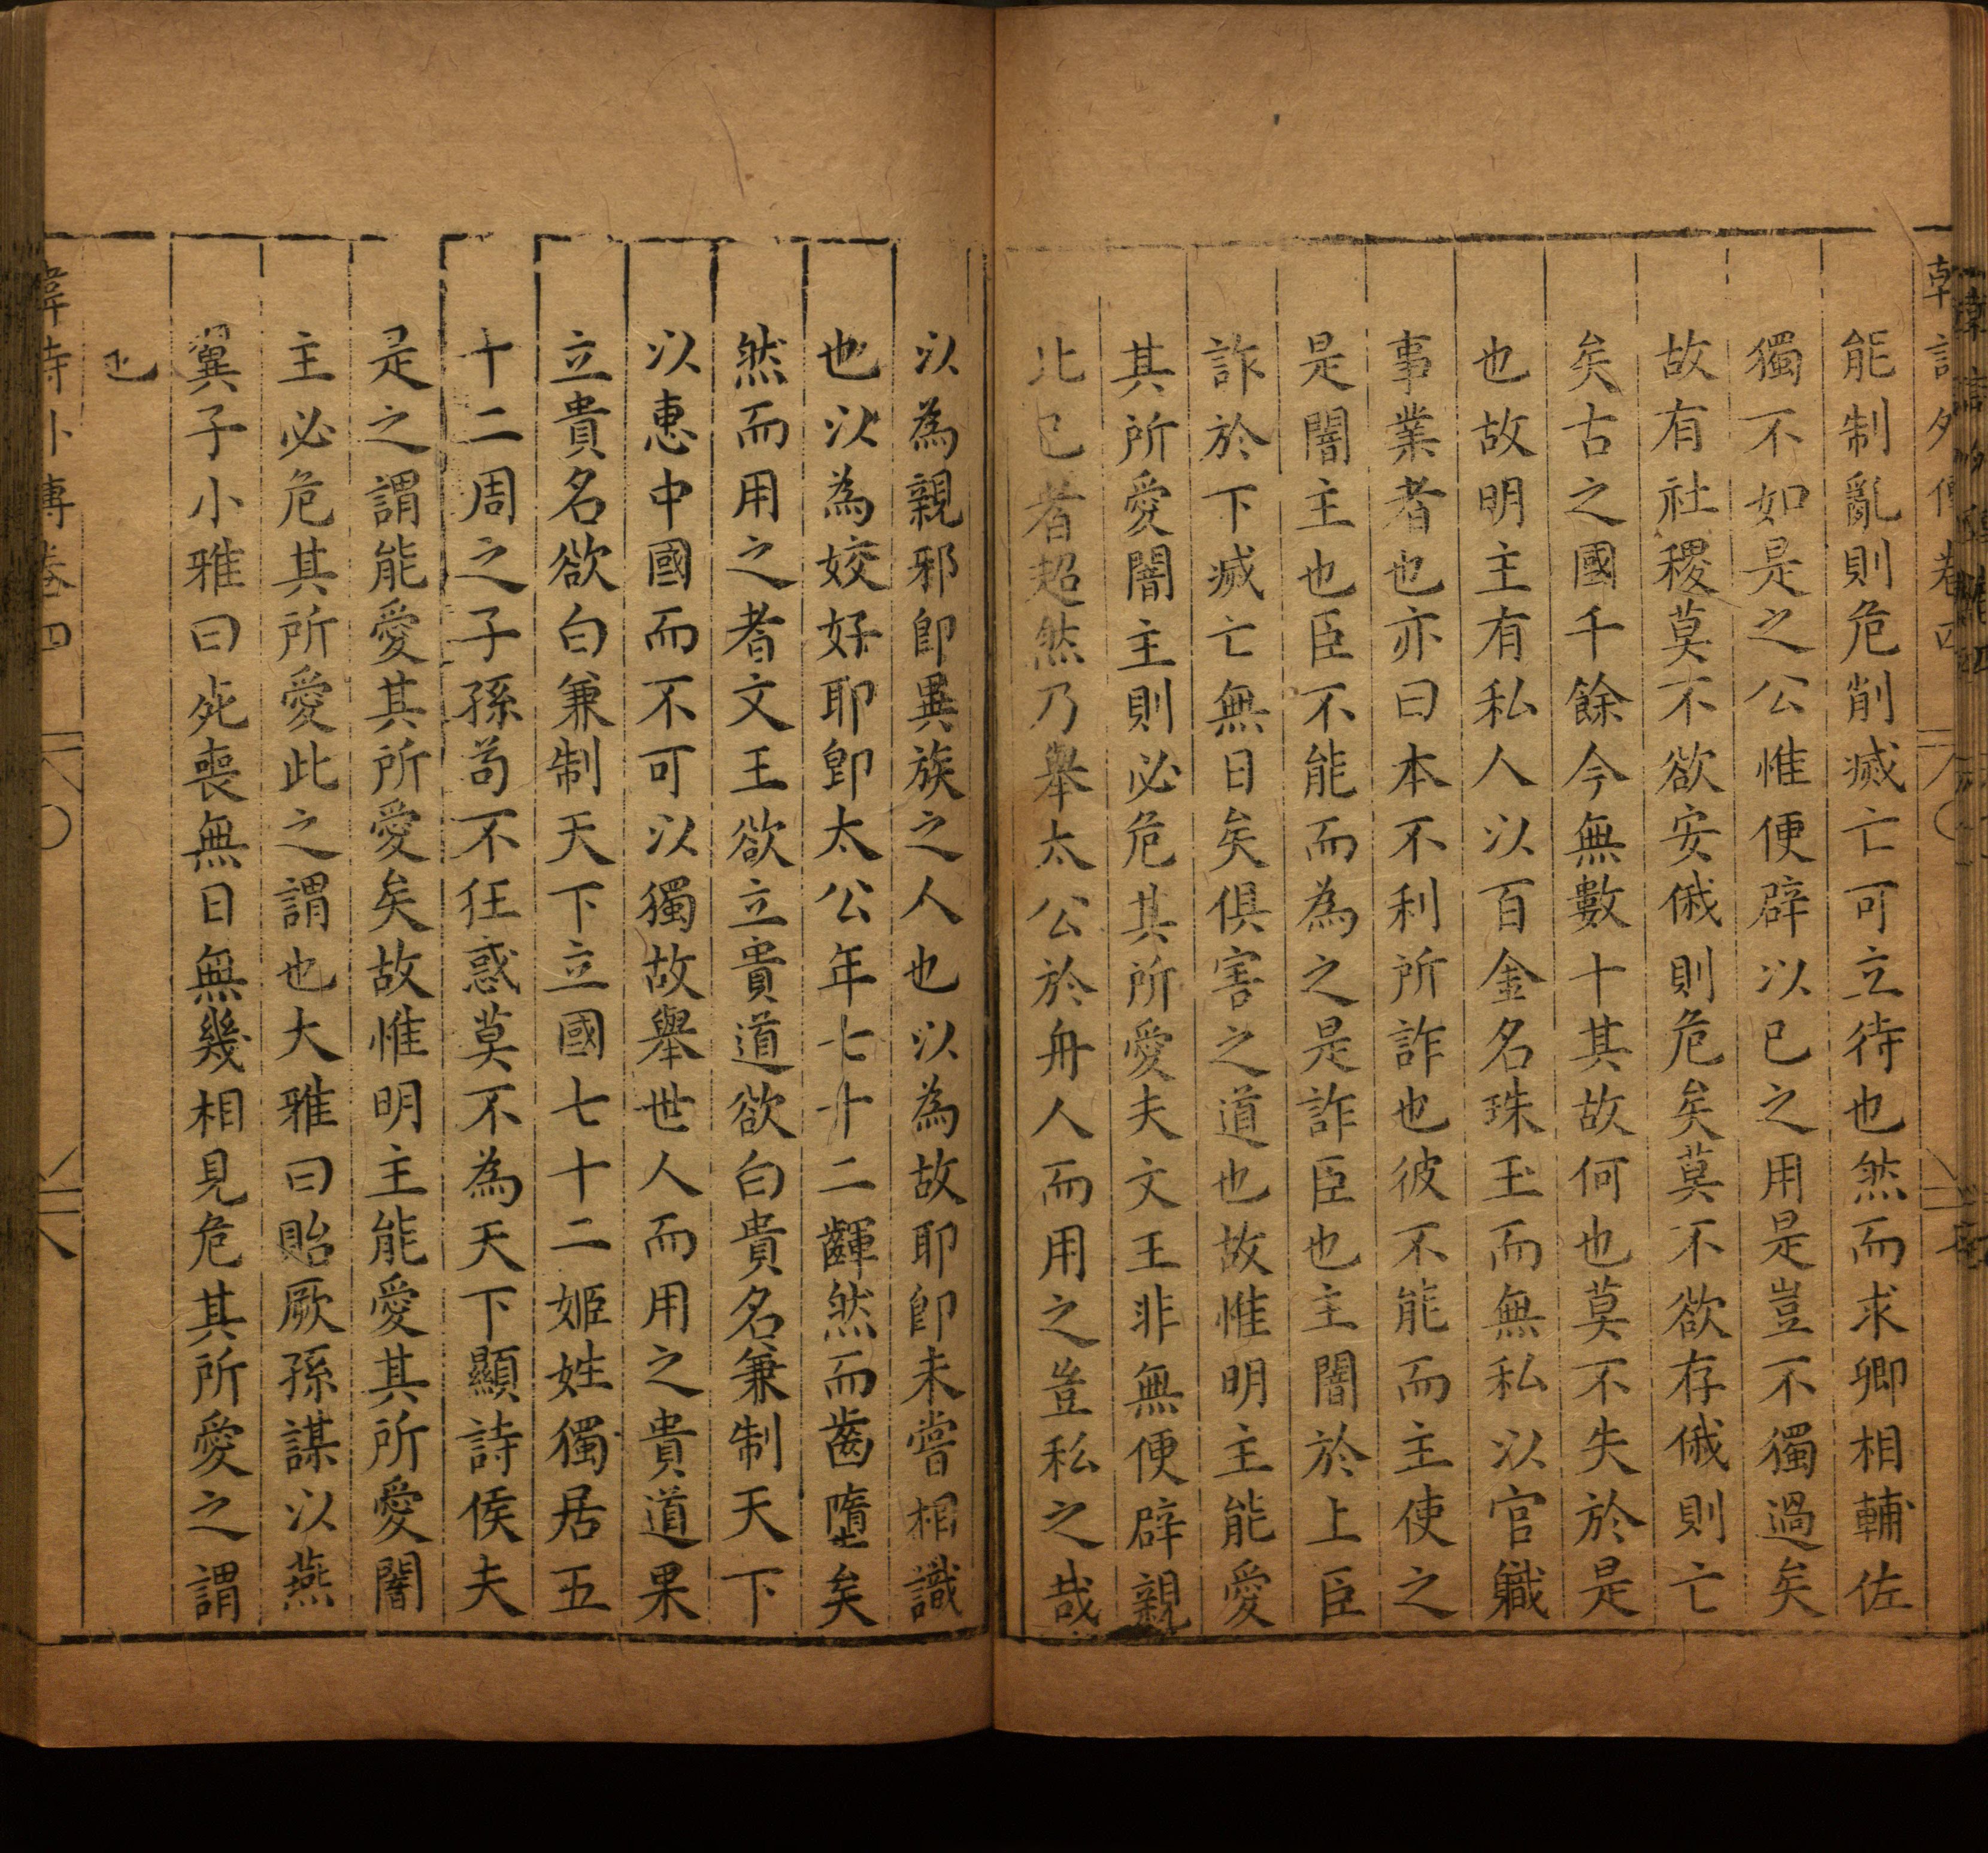 能制亂則危削滅亡可立待也然而求卿相輔佐
獨不如是之公惟便辟以已之用是豈不獨過矣
故有社稷莫不欲安俄則危矣莫不欲存俄則亡
矣古之國千餘今無數十其故何也莫不失於是
也故明主有私人以百金名珠玉而無私以官職
事業者也亦曰本不利所詐也彼不能而主使之
是闇主也臣不能而為之是詐臣也主闇於上臣
詐於下滅亡無日矣俱害之道也故惟明主能愛
其所愛闇主則必危其所愛夫文王非無便辟親
比已者超然乃舉太公於舟人而用之豈私之哉
以為親邪卽異族之人也以為故耶卽未嘗相識
也以為姣好耶卽太公年七十二齳然而齒墮矣
然而用之者文王欲立貴道欲白貴名兼制天下
以惠中國而不可以獨故舉世人而用之貴道果
立貴名欲白兼制天下立國七十二姬姓獨居五
十二周之子孫苟不狂惑莫不為天下顯諸侯夫
是之謂能愛其所愛矣故惟明主能愛其所愛闇
主必危其所愛此之謂也大雅曰貽厥孫謀以燕
翼子小雅曰死喪無日無幾相見危其所愛之謂
也
韓詩外傳卷四